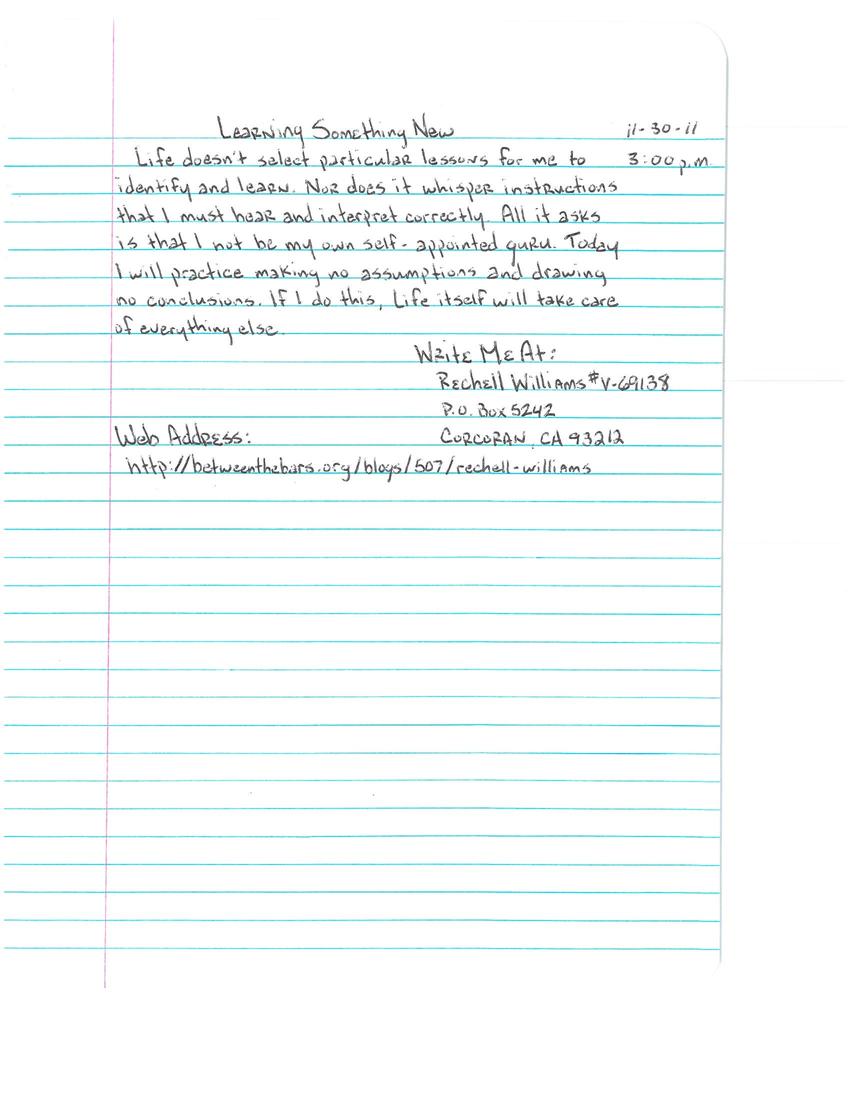 Learning Something New 11-30-11
Life doesn't select particular lessons for me to 3:00 p.m.
identify and learn. Nor does it whisper instructions
that I must hear and interpret correctly. All it asks
is that I not be my own self-appointed guru. Today
I will practice making no assumptions and drawing
no conclusions. If I do this, Life itself will take care
of everything else.
Write Me At:
Rechell Williams #V-69138
P.O. Box 5242
Web Address: Corcoran, CA 93212
http://betweenthebars.org/blogs/507/rechell-williams